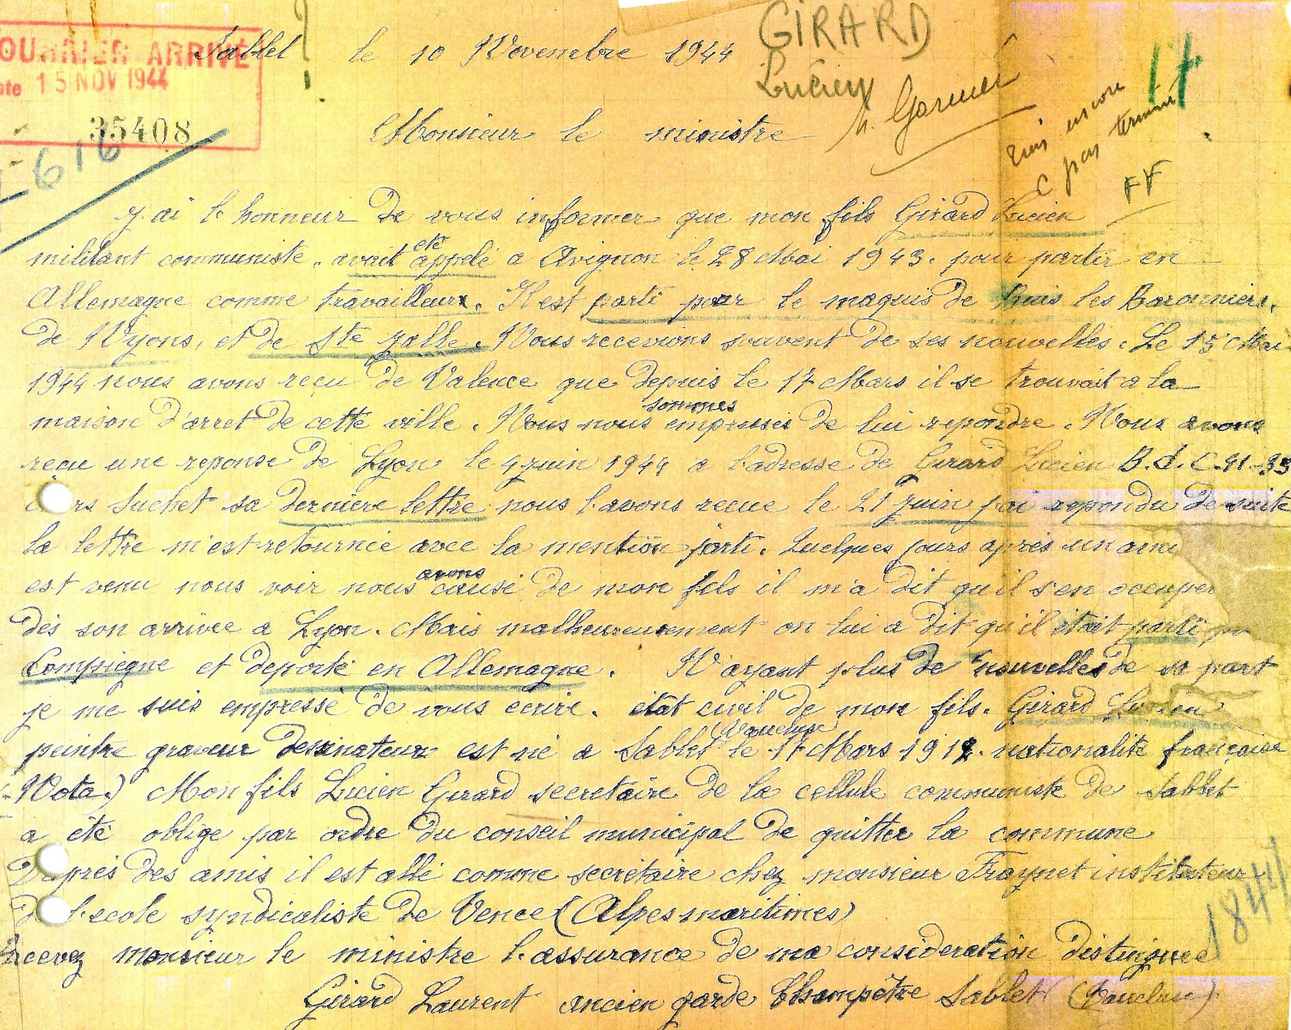 COURRIER ARRIVÉ
15 NOV 1944
35408
616
Sablet le 10 Novembre 1944
GIRARD
Lucien
17
Monsieur le ministre
M. Garnier
pas terminé
FF
J'ai l'honneur de vous informer que mon fils Girard Lucien
militant communiste. avait été appelé a Avignon le 28 Mai 1943. pour partir en
Allemagne comme travailleur. Il est parti pour le maquis de buis les Baronnies.
de Nyons, et de Ste jalle. Nous recevions souvent de ses nouvelles. Le 15 Mai
1944 nous avons reçu de Valence que depuis le 17 Mars il se trouvait a la
maison d'arret de cette ville. Nous nous sommes empressés de lui repondre. Nous avons
reçu une reponse de Lyon le 4 juin 1944 a l'adresse de Girard Lucien
Suchet sa dernière lettre nous l'avons reçue le 21 juin j'ai repondu de suite
la lettre m'est retournée avec la mention parti. Quelques jours après un ami
est venu nous voir nous avons causé de mon fils il m'a dit qu'il s'en occuper
dès son arrivée a Lyon. Mais malheureusement on lui a dit qu'il était parti
Compiegne et deporté en Allemagne. N'ayant plus de nouvelles de sa part
je me suis empressé de vous écrire. état civil de mon fils. Girard Lucien
peintre graveur dessinateur est né a Sablet (Vaucluse) le 17 Mars 1912. nationalité française
Nota) Mon fils Lucien Girard secretaire de la cellule communiste de Sablet
a été obligé par ordre du conseil municipal de quitter la commune
D'après des amis il est allé comme secrétaire chez monsieur Fraynet instituteur
de l'ecole syndicaliste de Vence (Alpes maritimes)
Recevez monsieur le ministre l'assurance de ma considération distinguée
Girard Laurent ancien garde Champêtre Sablet (Vaucluse)